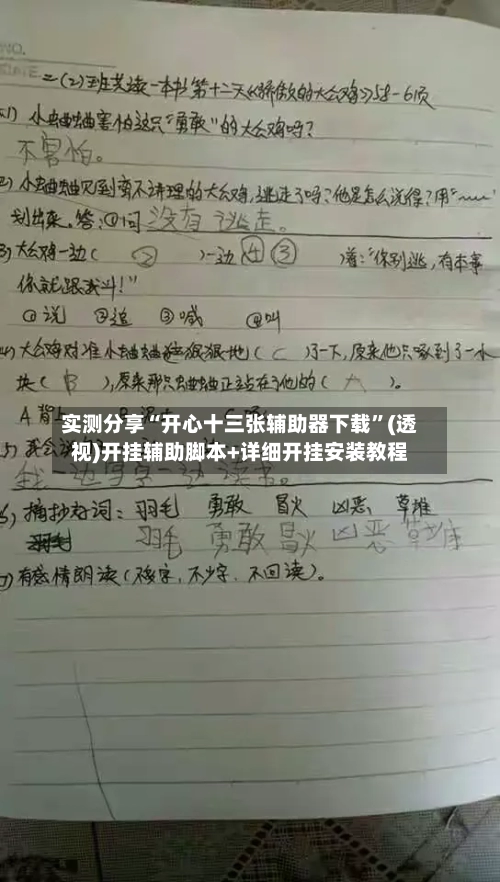 NO.
DATE
二(2)班共读一本书第十二天《骄傲的大公鸡》58-61页
1) 小蛐蛐害怕这只"勇敢"的大公鸡吗？
不害怕。
2) 小蛐蛐见到蛮不讲理的大公鸡,逃走了吗?他是怎么说得?用"﹏﹏"
划出来。答:①问没有逃走。
3) 大公鸡一边( ② )一边④③ )着:"你别逃,有本事
你就跟我斗!"
①说 ②追 ③喊 ④叫
4) 大公鸡对准小蛐蛐狠狠地( C )了一下,原来他只啄到了一小
块( B ),原来那只蛐蛐正站在了他的( A )。
A.背上
实测分享“开心十三张辅助器下载”(透
视)开挂辅助脚本+详细开挂安装教程
5) 我会说
我一边写字一边读书。
6) 摘抄好词: 羽毛 勇敢 冒火 凶恶 草堆
羽毛 羽毛 勇敢 冒火 凶恶 草堆
7) 有感情朗读(不多字,不少字,不回读)。